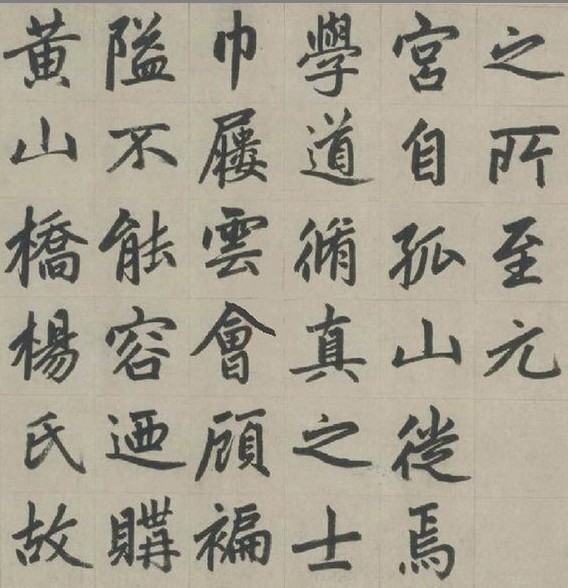 之所至元
宮自孤山徙焉
學道脩真之士
巾屨雲會顧褊
隘不能容迺購
黄山橋楊氏故